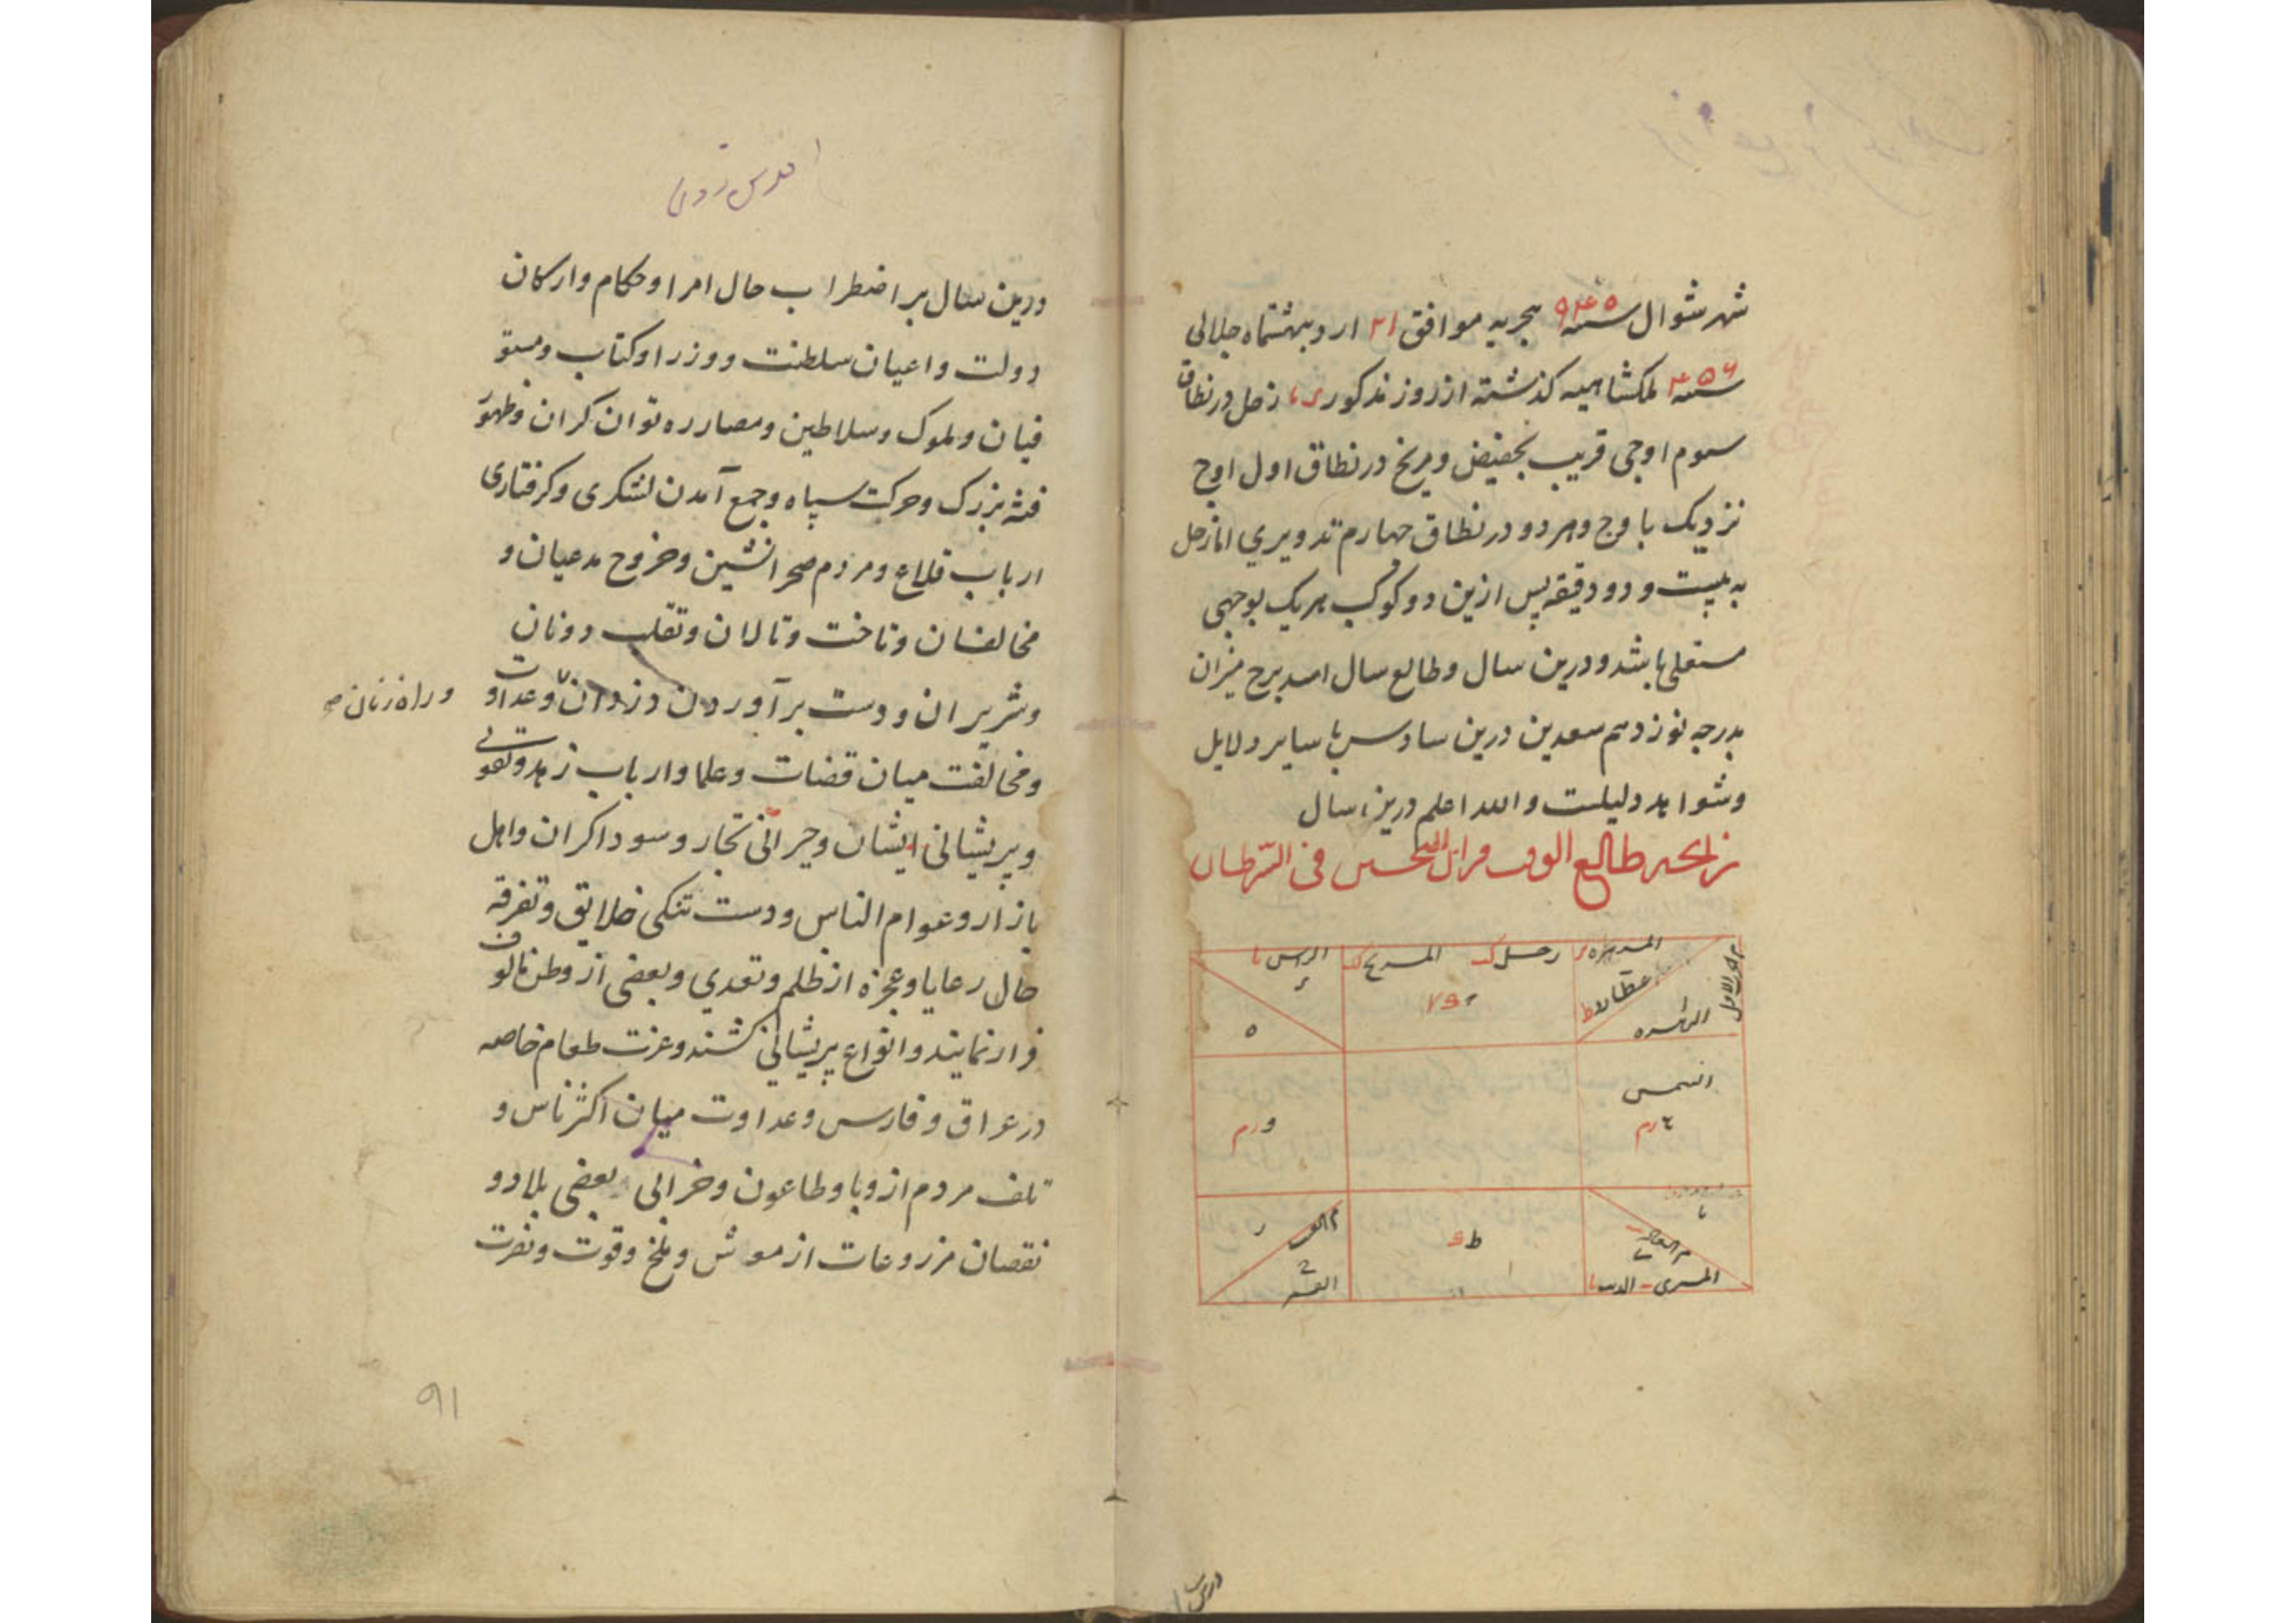 شهر شوال سنه ۹۴۵ هجریه موافق ۲۱ اردیبهشتماه جلالی
سنه ۴۵۶ ملکشاهیه کذشته از روز مذکور زحل در نطاق
سوم اوجی قریب بحضیض و مریخ در نطاق اول اوج
نزدیک باوج و هر دو در نطاق چهارم تدویری اما زحل
به بیست و دو دقیقه پس ازین دو کوکب هریک بوجهی
مستعلی باشد و درین سال و طالع سال اسد برج میزان
بدرجه نوزدهم سعدین درین سادس با سایر دلایل
و شواهد دلیلست و الله اعلم درین سال
زایجه طالع الوقت قران النحسین فی السرطان
زحل المریخ الراس
عطارد
الزهره
الشمس
المشتری الذنب
القمر
درین سال بر اضطراب حال امرا و حکام و ارکان
دولت و اعیان سلطنت و وزرا و کتاب و مستو
فیان و ملوک و سلاطین و مصادره توان کران و ظهور
فتنه بزرک و حرکت سپاه و جمع آمدن لشکری و کرفتاری
ارباب قلاع و مردم صحرانشین و خروج مدعیان و
مخالفان و تاخت و تالان و تقلب دونان
و شریران و دست برآوردن دزدان و عداوت
و راه زنان صح
و مخالفت میان قضات و علما و ارباب زهد و تقوی
و پریشانی ایشان و حیرانی تجار و سوداکران و اهل
بازار و عوام الناس و دست تنکی خلایق و تفرقه
حال رعایا و عجزه از ظلم و تعدی و بعضی از وطن مالوف
فرار نمایند و انواع پریشانی کشند و عزت طعام خاصه
در عراق و فارس و عداوت میان اکثر ناس و
تلف مردم از وبا و طاعون و خرابی بعضی بلاد و
نقصان مزروعات از موش و ملخ و قوت و نصرت
۹۱